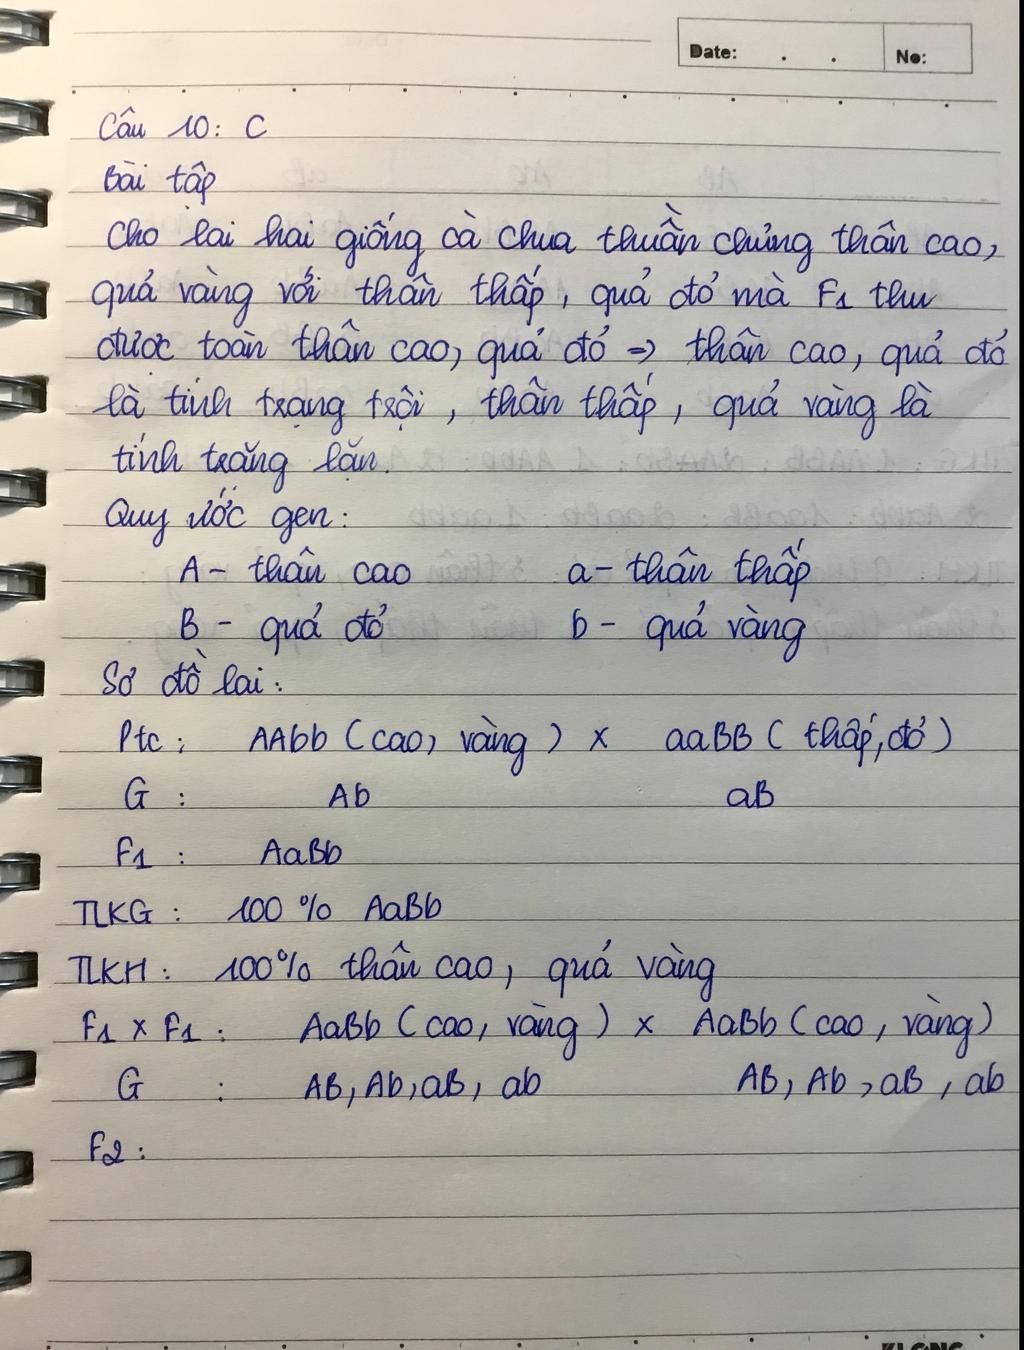 Date: . . No:
Câu 10: C
Bài tập
Cho lai hai giống cà chua thuần chủng thân cao,
quả vàng với thân thấp, quả đỏ mà F1 thu
được toàn thân cao, quả đỏ => thân cao, quả đỏ
là tính trạng trội, thân thấp, quả vàng là
tính trặng lặn.
Quy ước gen:
A - thân cao a - thân thấp
B - quả đỏ b - quả vàng
Sơ đồ lai:
Ptc: AAbb (cao, vàng) x aaBB (thấp, đỏ)
G : Ab aB
F1 : AaBb
TLKG : 100 % AaBb
TLKH : 100% thân cao, quả vàng
F1 x F1 : AaBb (cao, vàng) x AaBb (cao, vàng)
G : AB, Ab, aB, ab AB, Ab, aB, ab
F2 :